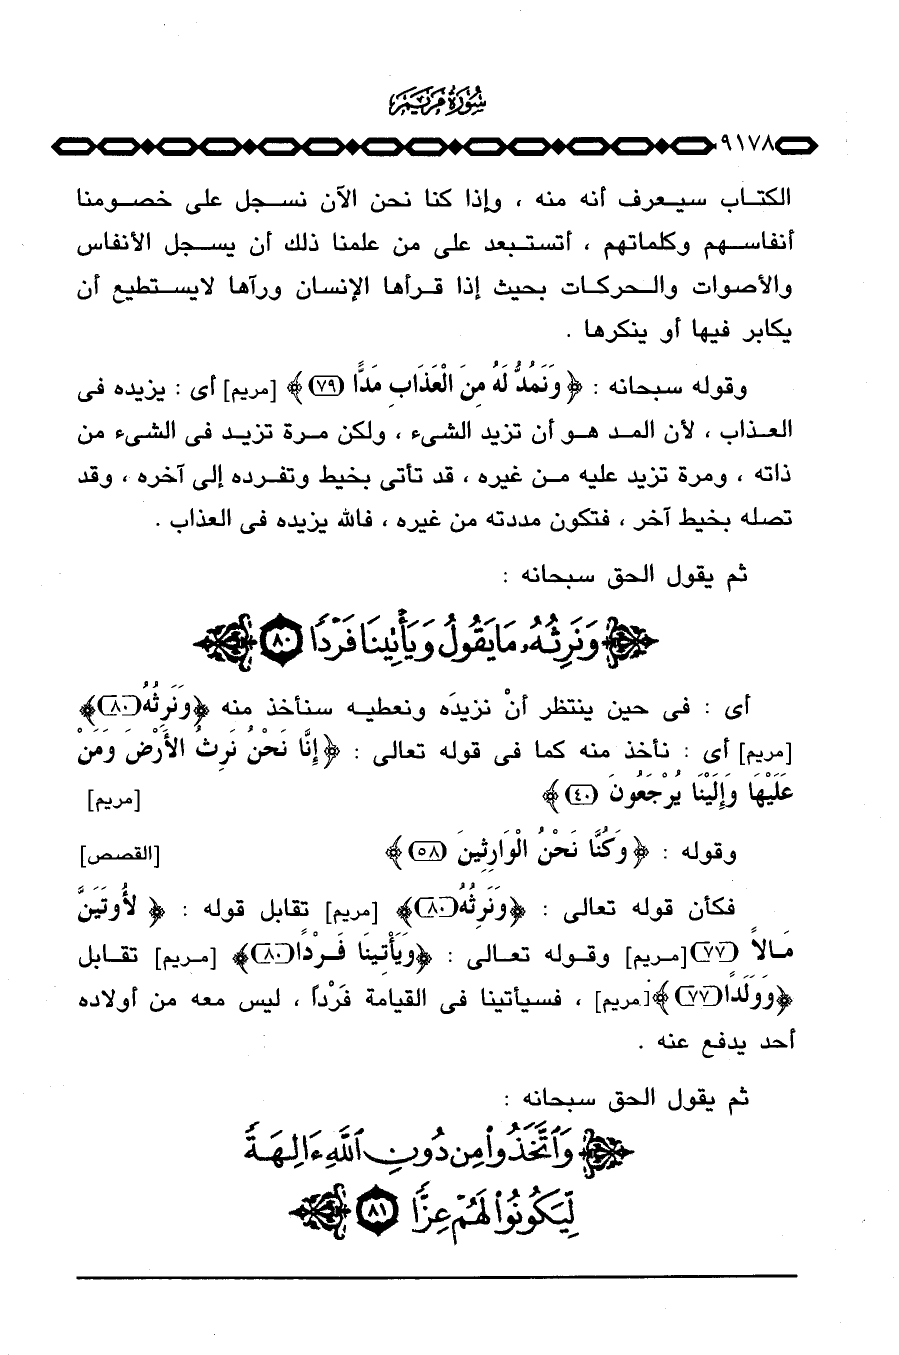 سُورَة مَرْيَم
٩١٧٨
الكتـاب سيـعرف أنه منه ، وإذا كنا نحن الآن نسـجل على خصـومنا
أنفاسـهم وكلماتهم ، أتستـبعد على من علمنا ذلك أن يسـجل الأنفاس
والأصوات والـحركـات بحيث إذا قـرأها الإنسان ورآها لايسـتطيع أن
يكابر فيها أو ينكرها .
وقوله سبحانه : ﴿ وَنَمُدُّ لَهُ مِنَ الْعَذَابِ مَدًّا (٧٩) ﴾ [مريم] أى : يزيده فى
العـذاب ، لأن المـد هـو أن تزيد الشىء ، ولكن مـرة تزيـد فى الشىء من
ذاته ، ومرة تزيد عليه مـن غيره ، قد تأتى بخيط وتفـرده إلى آخره ، وقد
تصله بخيط آخر ، فتكون مددته من غيره ، فالله يزيده فى العذاب .
ثم يقول الحق سبحانه :
﴿ وَنَرِثُهُۥ مَا يَقُولُ وَيَأْتِينَا فَرْدًا ٨٠ ﴾
أى : فى حين ينتظر أنْ نزيدَه ونعطيـه سنأخذ منه ﴿وَنَرِثُهُ (٨٠)﴾
[مريم] أى : نأخذ منه كما فى قوله تعالى : ﴿ إِنَّا نَحْنُ نَرِثُ الأَرْضَ وَمَنْ
عَلَيْهَا وَإِلَيْنَا يُرْجَعُونَ (٤٠) ﴾ [مريم]
وقوله : ﴿ وَكُنَّا نَحْنُ الْوَارِثِينَ (٥٨) ﴾ [القصص]
فكأن قوله تعالى : ﴿وَنَرِثُهُ (٨٠)﴾ [مريم] تقابل قوله : ﴿ لأُوتَيَنَّ
مَـالاً (٧٧) [مـريم] وقـوله تعـالى : ﴿وَيَأْتِينَا فَـرْدًا (٨٠)﴾ [مـريم] تقـابل
﴿وَوَلَدًا (٧٧)﴾ [مريم] ، فسيأتينا فى القيامة فَرْداً ، ليس معه من أولاده
أحد يدفع عنه .
ثم يقول الحق سبحانه :
﴿ وَٱتَّخَذُوا۟ مِن دُونِ ٱللَّهِ ءَالِهَةً
لِّيَكُونُوا۟ لَهُمْ عِزًّا ٨١ ﴾